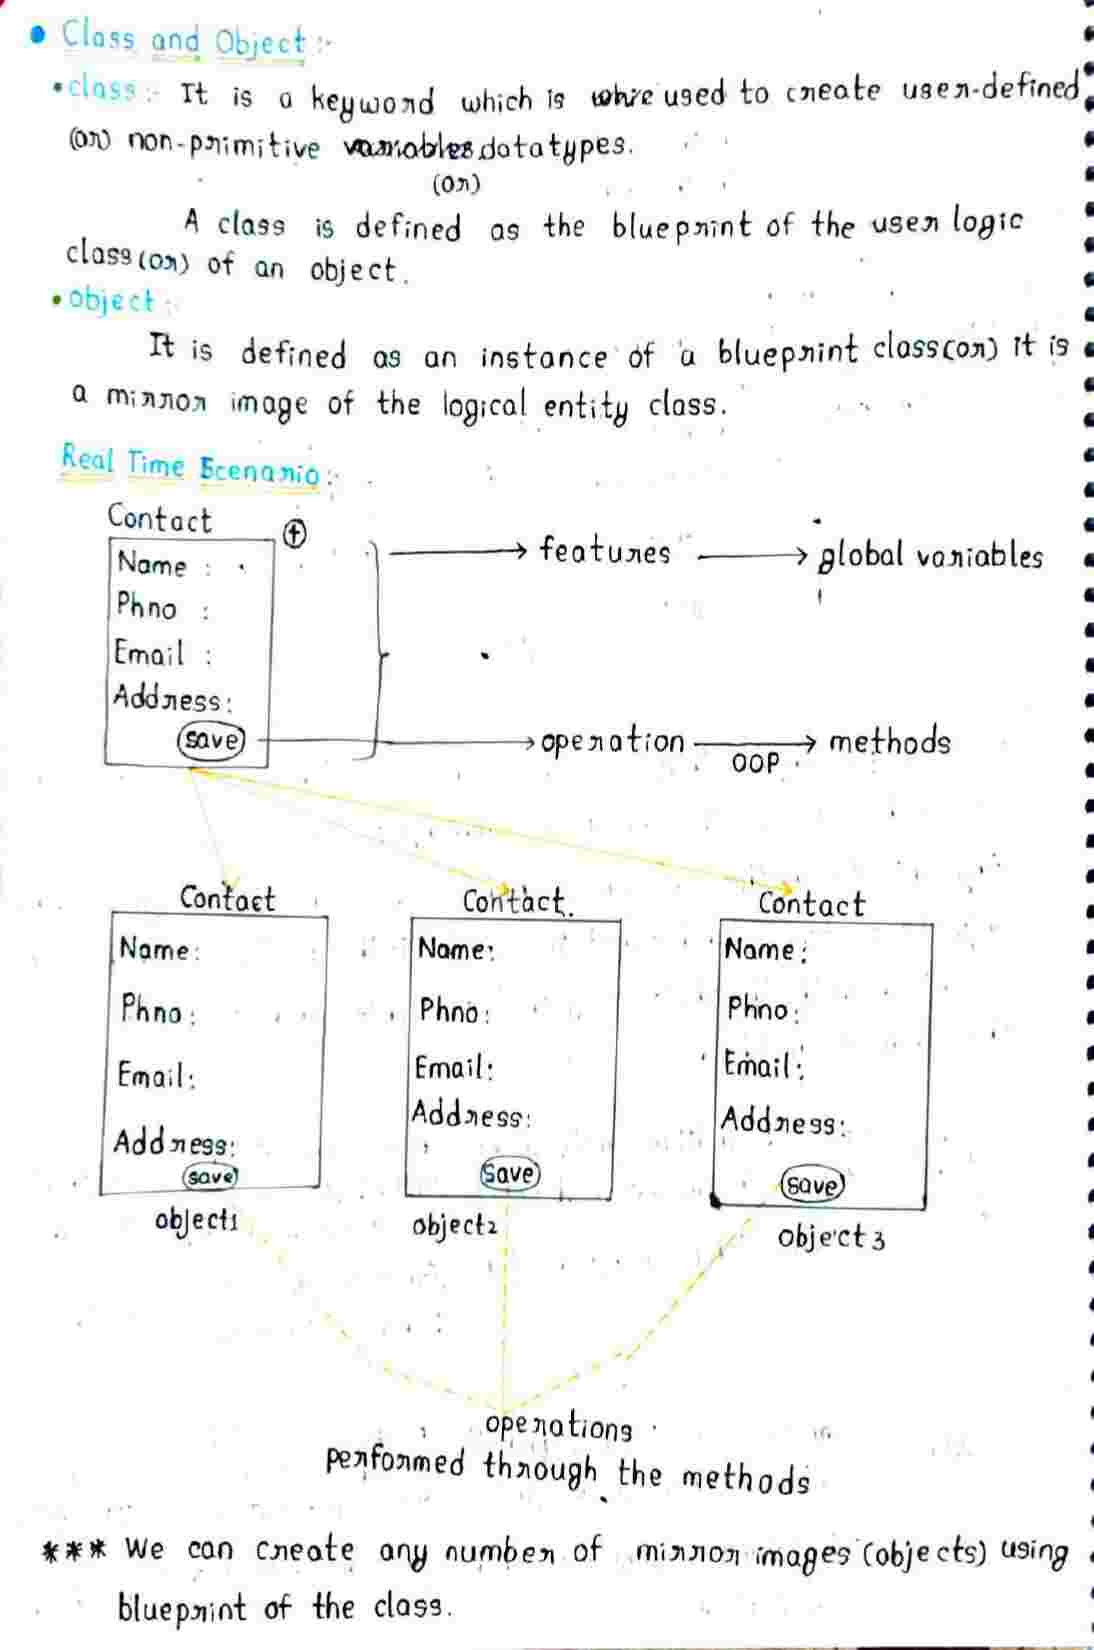 Class and Object :-
• class :- It is a keyword which is used to create user-defined
(or) non-primitive datatypes.
(or)
A class is defined as the blueprint of the user logic
class (or) of an object.
• object :-
It is defined as an instance of a blueprint class (or) it is
a mirror image of the logical entity class.
Real Time Scenario :-
Contact
+
Name :
Phno :
Email :
Address:
save
features
global variables
operation
OOP
methods
Contact
Name:
Phno:
Email:
Address:
save
object1
Contact.
Name:
Phno:
Email:
Address:
save
object2
Contact
Name:
Phno:
Email:
Address:
save
object3
operations
performed through the methods
*** We can create any number of mirror images (objects) using
blueprint of the class.